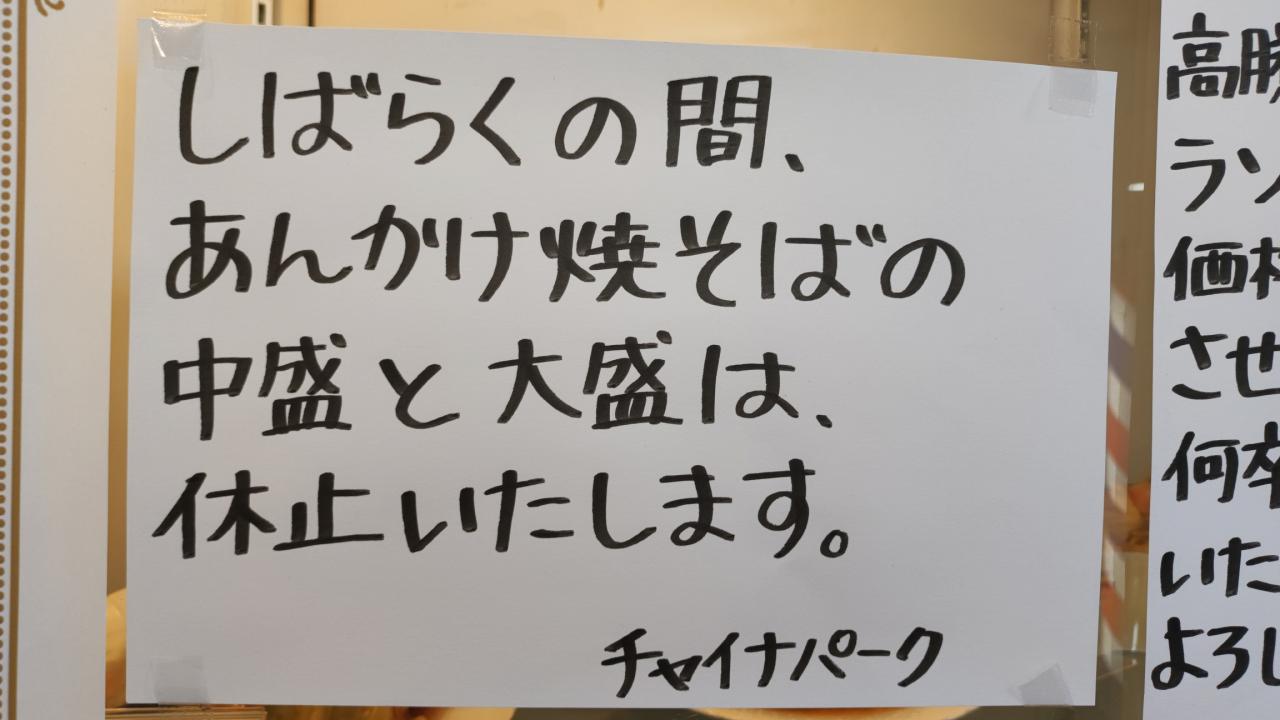 しばらくの間、
あんかけ焼そばの
中盛と大盛は、
休止いたします。
チャイナパーク
高勝
ラン
価格
させ
何卒
いた
よろし